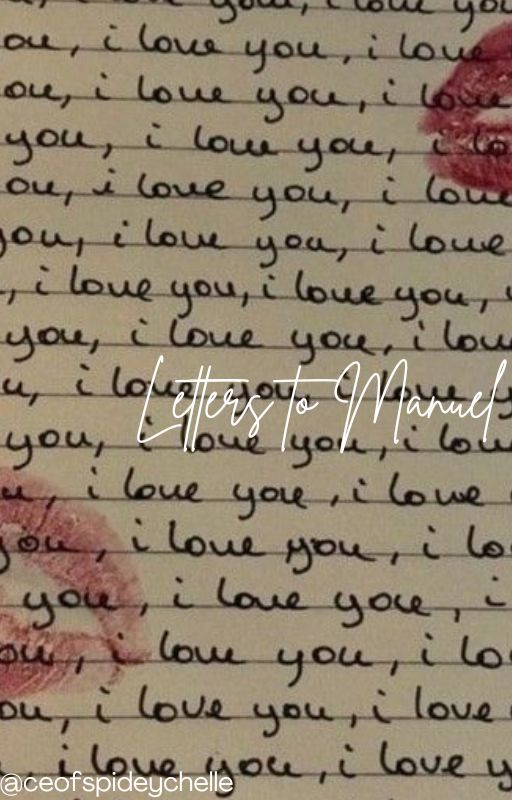 u, i love you, i love you
ou, i love you, i love
ou, i love you, i love
you, i love you, i lo
ou, i love you, i love
you, i love you, i love
, i love you, i love you,
you, i love you, i lov
u, i love you, i love y
Letters to Manuel
you, i love you, i lov
u, i love you, i love
you, i love you, i lo
you, i love you, i
ou, i love you, i lo
ou, i love you, i love
, i love you, i love y
@ceofspideychelle